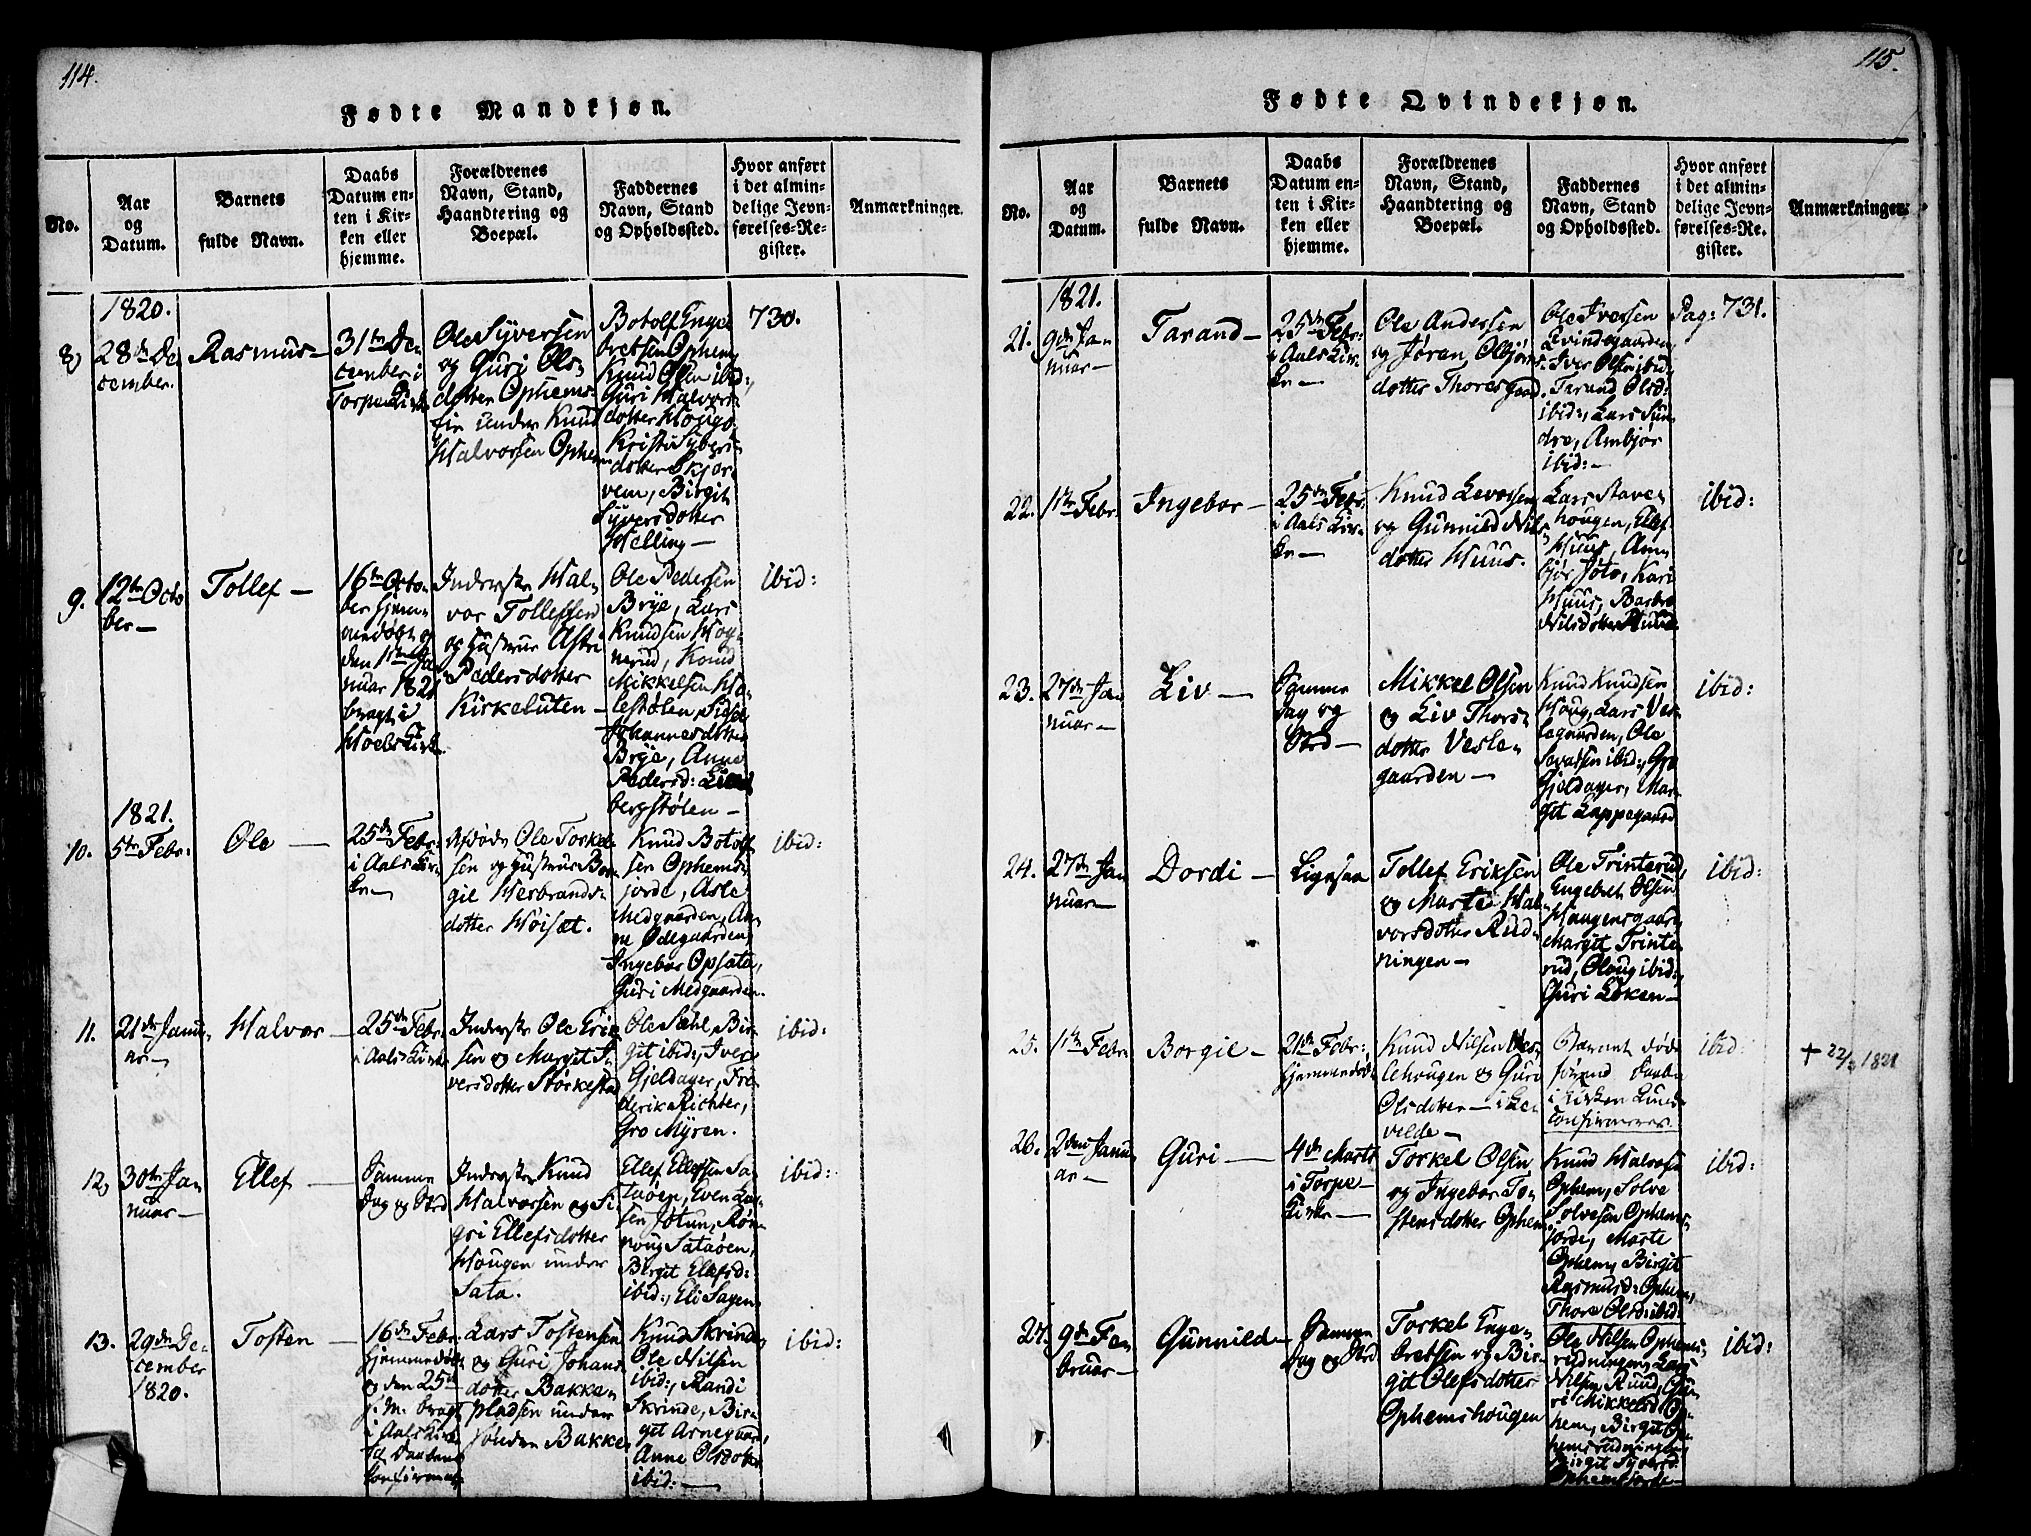 114.
Fødte Mandkjøn.
No.
Aar
og
Datum.
Barnets
fulde Navn.
Daabs
Datum en-
ten i Kir-
ken eller
hjemme.
Forældrenes
Navn, Stand,
Haandtering og
Boepæl.
Faddernes
Navn, Stand
og Opholdssted.
Hvor anført
i det almin-
delige Jevn-
førelses-Re-
gister.
Anmærkninger.
8)
1820.
28de De
cember.
Rasmus
31te De
cember i
Torpe Kirke
Ole Syversen
og Guri Ols-
dotter Ophems-
eie under Knud
Halvorsen Ophem
Botolf Engel
bretsen Ophem
Knud Olsen ibid:,
Guri Halvors
dotter Houg
Kristi Syvers
dotter Skjer
vem, Birgit
Syversdotter
Helling
730.
9.
12te Octo
ber
Tollef
16te Octo
ber hjem
medøbt og
den 1ste Ja
nuar 1821
bragt i
Hoels Kirke
Inderste Hal
vor Tollefsen
og Hustrue Astri
Pedersdotter
Kirkeluten
Ole Pedersen
Brye, Lars
Knudsen Hog
nerud, Knud
Mikkelsen
Johannesdotter
Brye, Anne
Pedersd:
bergstølen
ibid:
10.
1821.
5te Febr:
Ole
25de Febr:
i Aals Kir
ke
Afdøde Ole Torkel
sen og Hustrue Bor
gil Herbrands
dotter Høiset.
Knud Botolf
sen Ophems
jorde, Asle
Medgaarden, An
ne Ødegaarden,
Ingebor Opsata,
Guri Medgaarden.
ibid:
11.
21de Janu
ar
Halvor
25de Febr:
i Aals Kirke
Inderste Ole Erik
sen og Margit I
versdotter Størkestad
Ole Sahl, Bir
git ibid:, Iver
Gjeldager, Fre
derik Richter,
Gro Myren.
ibid:
12)
30te Ja
nuar
Ellef
Samme
Dag og Sted
Inderste Knud
Halvorsen og Si
gri Ellefsdotter
Hougen under
Sata.
Ellef Ellefsen Sa
taøen, Even Lar
sen Jøtun, Røn
noug Sataøen,
Birgit Ellefsd:
ibid:, Eli Sagen
ibid:
13.
29de De
cember
1820.
Tosten
16de Febr:
hjemmedøbt
og den 25de
bragt
i Aals Kirke
Lars Tostensen
og Guri Johans
dotter Bakke
pladsen under
søndre Bakke
Knud Skrinde
Ole Nilsen
ibid:, Randi
Skrinde, Bir
git Arnegaard,
Anne Olsdotter
ibid:
ibid:
115.
Fødte Qvindekjøn.
No.
Aar
og
Datum.
Barnets
fulde Navn.
Daabs
Datum en-
ten i Kir-
ken eller
hjemme.
Forældrenes
Navn, Stand,
Haandtering og
Boepæl.
Faddernes
Navn, Stand
og Opholdssted.
Hvor anført
i det almin-
delige Jevn-
førelses-Re-
gister.
Anmærkninger.
21.
1821.
9de Ja
nuar
Tarand
25de Febr:
i Aals Kir
ke
Ole Andersen
og Jøran Olbjørns
dotter Thoresgaard
Ole Iversen
Qvindegaarden,
Iver Olsen ibid:,
Tarand Olsd:
ibid:, Lars Sun
dre, Ambjør
ibid:
Pag: 731.
22.
1ste Febr:
Ingebor
25de Febr:
i Aals Kir
ke
Knud Levorsen
og Gunnild Nils
dotter Huus.
Lars Stave
hougen, Ellef
Huus, Am
bjør Jøto, Kari
Huus, Barbro
Nilsdotter Ruud
ibid:
23.
27de Ja
nuar
Liv
Samme
Dag og
Sted
Mikkel Olsen
og Liv Thors
dotter Vesle
gaarden
Knud Knudsen
Houg, Lars Ves
legaarden, Ole
Sevatsen ibid:, Gro
Gjeldager, Mar
git Lappegaard
ibid:
24.
27de Ja
nuar
Dordi
Ligesaa
Tollef Eriksen
og Marte Hal
vorsdotter Rud
ningen
Ole Trinterud,
Engebret Olsen
Haugensgaard
Margit Trinte
rud, Oloug ibid:,
Guri Løken
ibid:
25.
1ste Febr:
Borgil
21de Febr:
hjemmedøbt
Knud Nilsen Ves
lehougen og Guri
Olsdotter i Le
velde
Barnet døde
førend Daaben
i Kirken kunde
confirmeres
ibid:
+ 22/2 1821
26.
2den Janu
ar
Guri
4de Marts
i Torpe
Kirke
Torkel Olsen
og Ingebor To
stensdotter Ophem
Knud Halvorsen
Ophem, Solve
Solvesen Ophems
jorde, Marte
Ophem, Birgit
Rasmusd: Ophem,
Thore Olsd: ibid:
ibid:
27.
9de Fe
bruar
Gunnild
Samme
Dag og Sted
Torkel Enge
bretsen og Bir
git Olefsdotter
Ophemshougen
Ole Nilsen Ophems
rudningen, Lars
Nilsen Ruud, Gu
ri Mikkelsd: Op
hem, Birgit Op
hemsrudningen,
Birgit Syversd:
Ophemsjorde
ibid: